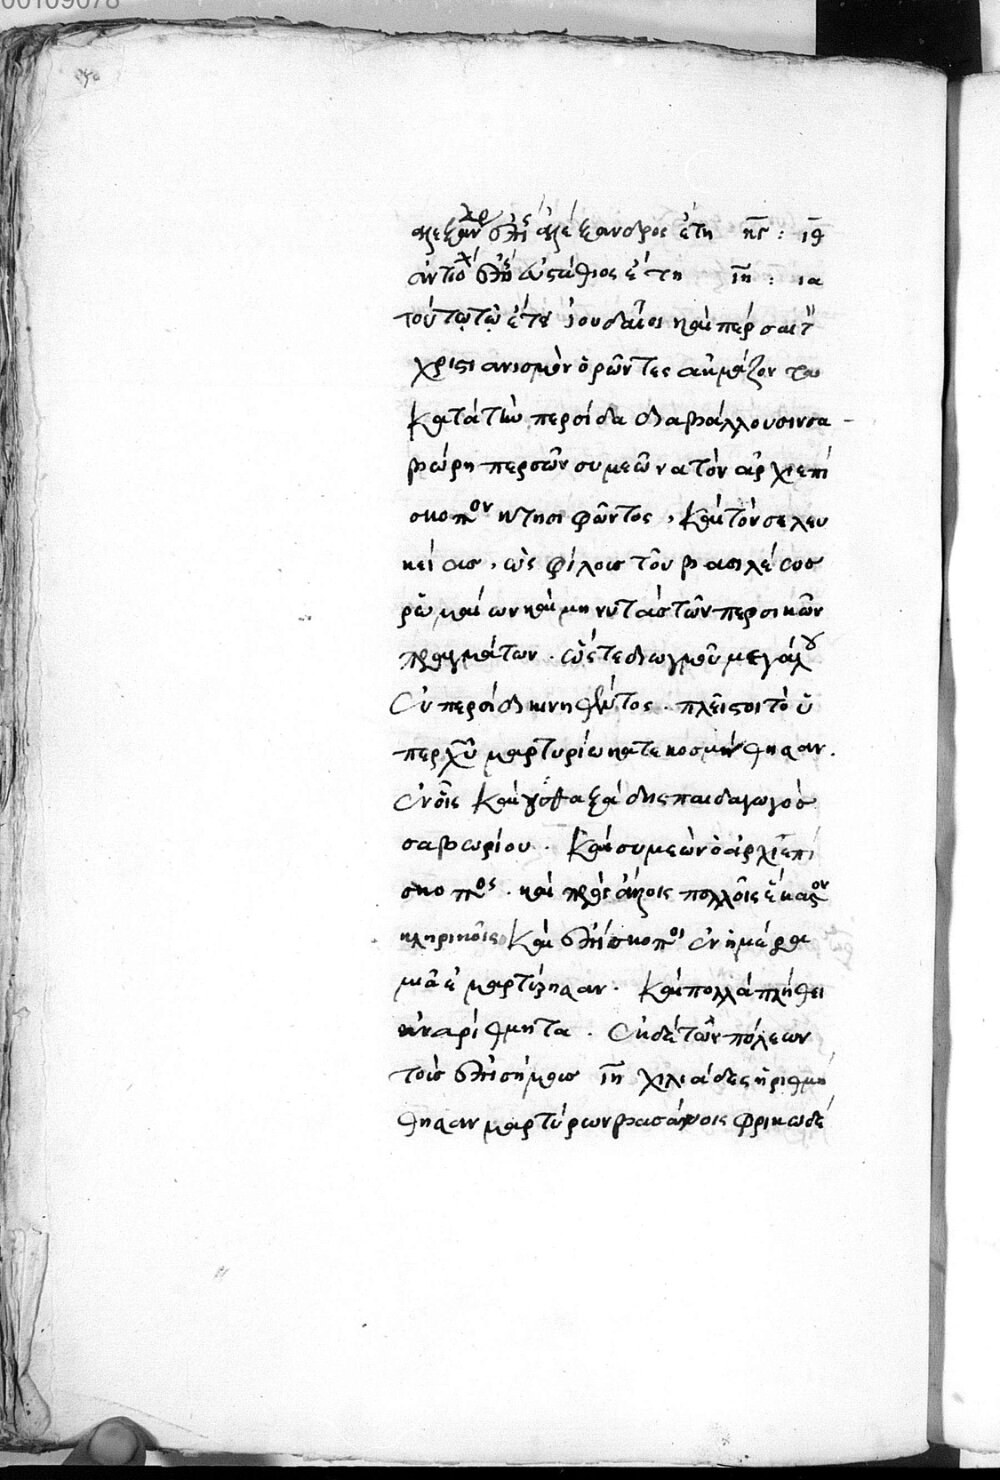 00109078
ἀλεξανδρ ἐπίς ἀλέξανδρος ἔτη κγ : ιθ
ἀντιοχ ἐπίς εὐστάθιος ἔτη ιη : ια
τούτῳ τῷ ἔτει ἰουδαῖοι καὶ πέρσαι τ
χριστιανισμὸν ὁρῶντες ἀκμάζοντα
κατὰ τὴν περσίδα διαβάλλουσιν σα-
βώρῃ περσῶν συμεῶνα τὸν ἀρχιεπί
σκοπον κτησιφῶντος, καὶ τὸν σελευ
κείας, ὡς φίλους τοῦ βασιλέως
ῥωμαίων καὶ μηνυτὰς τῶν περσικῶν
πραγμάτων. ὥστε διωγμοῦ μεγάλου
ἐν περσίδι κινηθέντος. πλεῖστοι τὸ ὑ
περ χῦ μαρτυρίω κατεκοσμήθησαν.
ἐν οἷς καὶ γοθαζάδης παιδαγωγὸς
σαβωρίου. καὶ συμεὼν ὁ ἀρχιεπί
σκοπος. καὶ πρὸς αὐτοῖς πολλοῖς ἕκατον
κληρικοῖς καὶ ἐπίσκοποι ἐν ἡμέρα
μιᾶ ἐμαρτύρησαν. καὶ πολλὰ πλήθει
ἀναρίθμητα. ἐκ δὲ τῶν πόλεων
τοῖς ἐπισήμοις ιη χιλιάδες ἠριθμή
θησαν μαρτύρων βασάνοις φρικωδέ